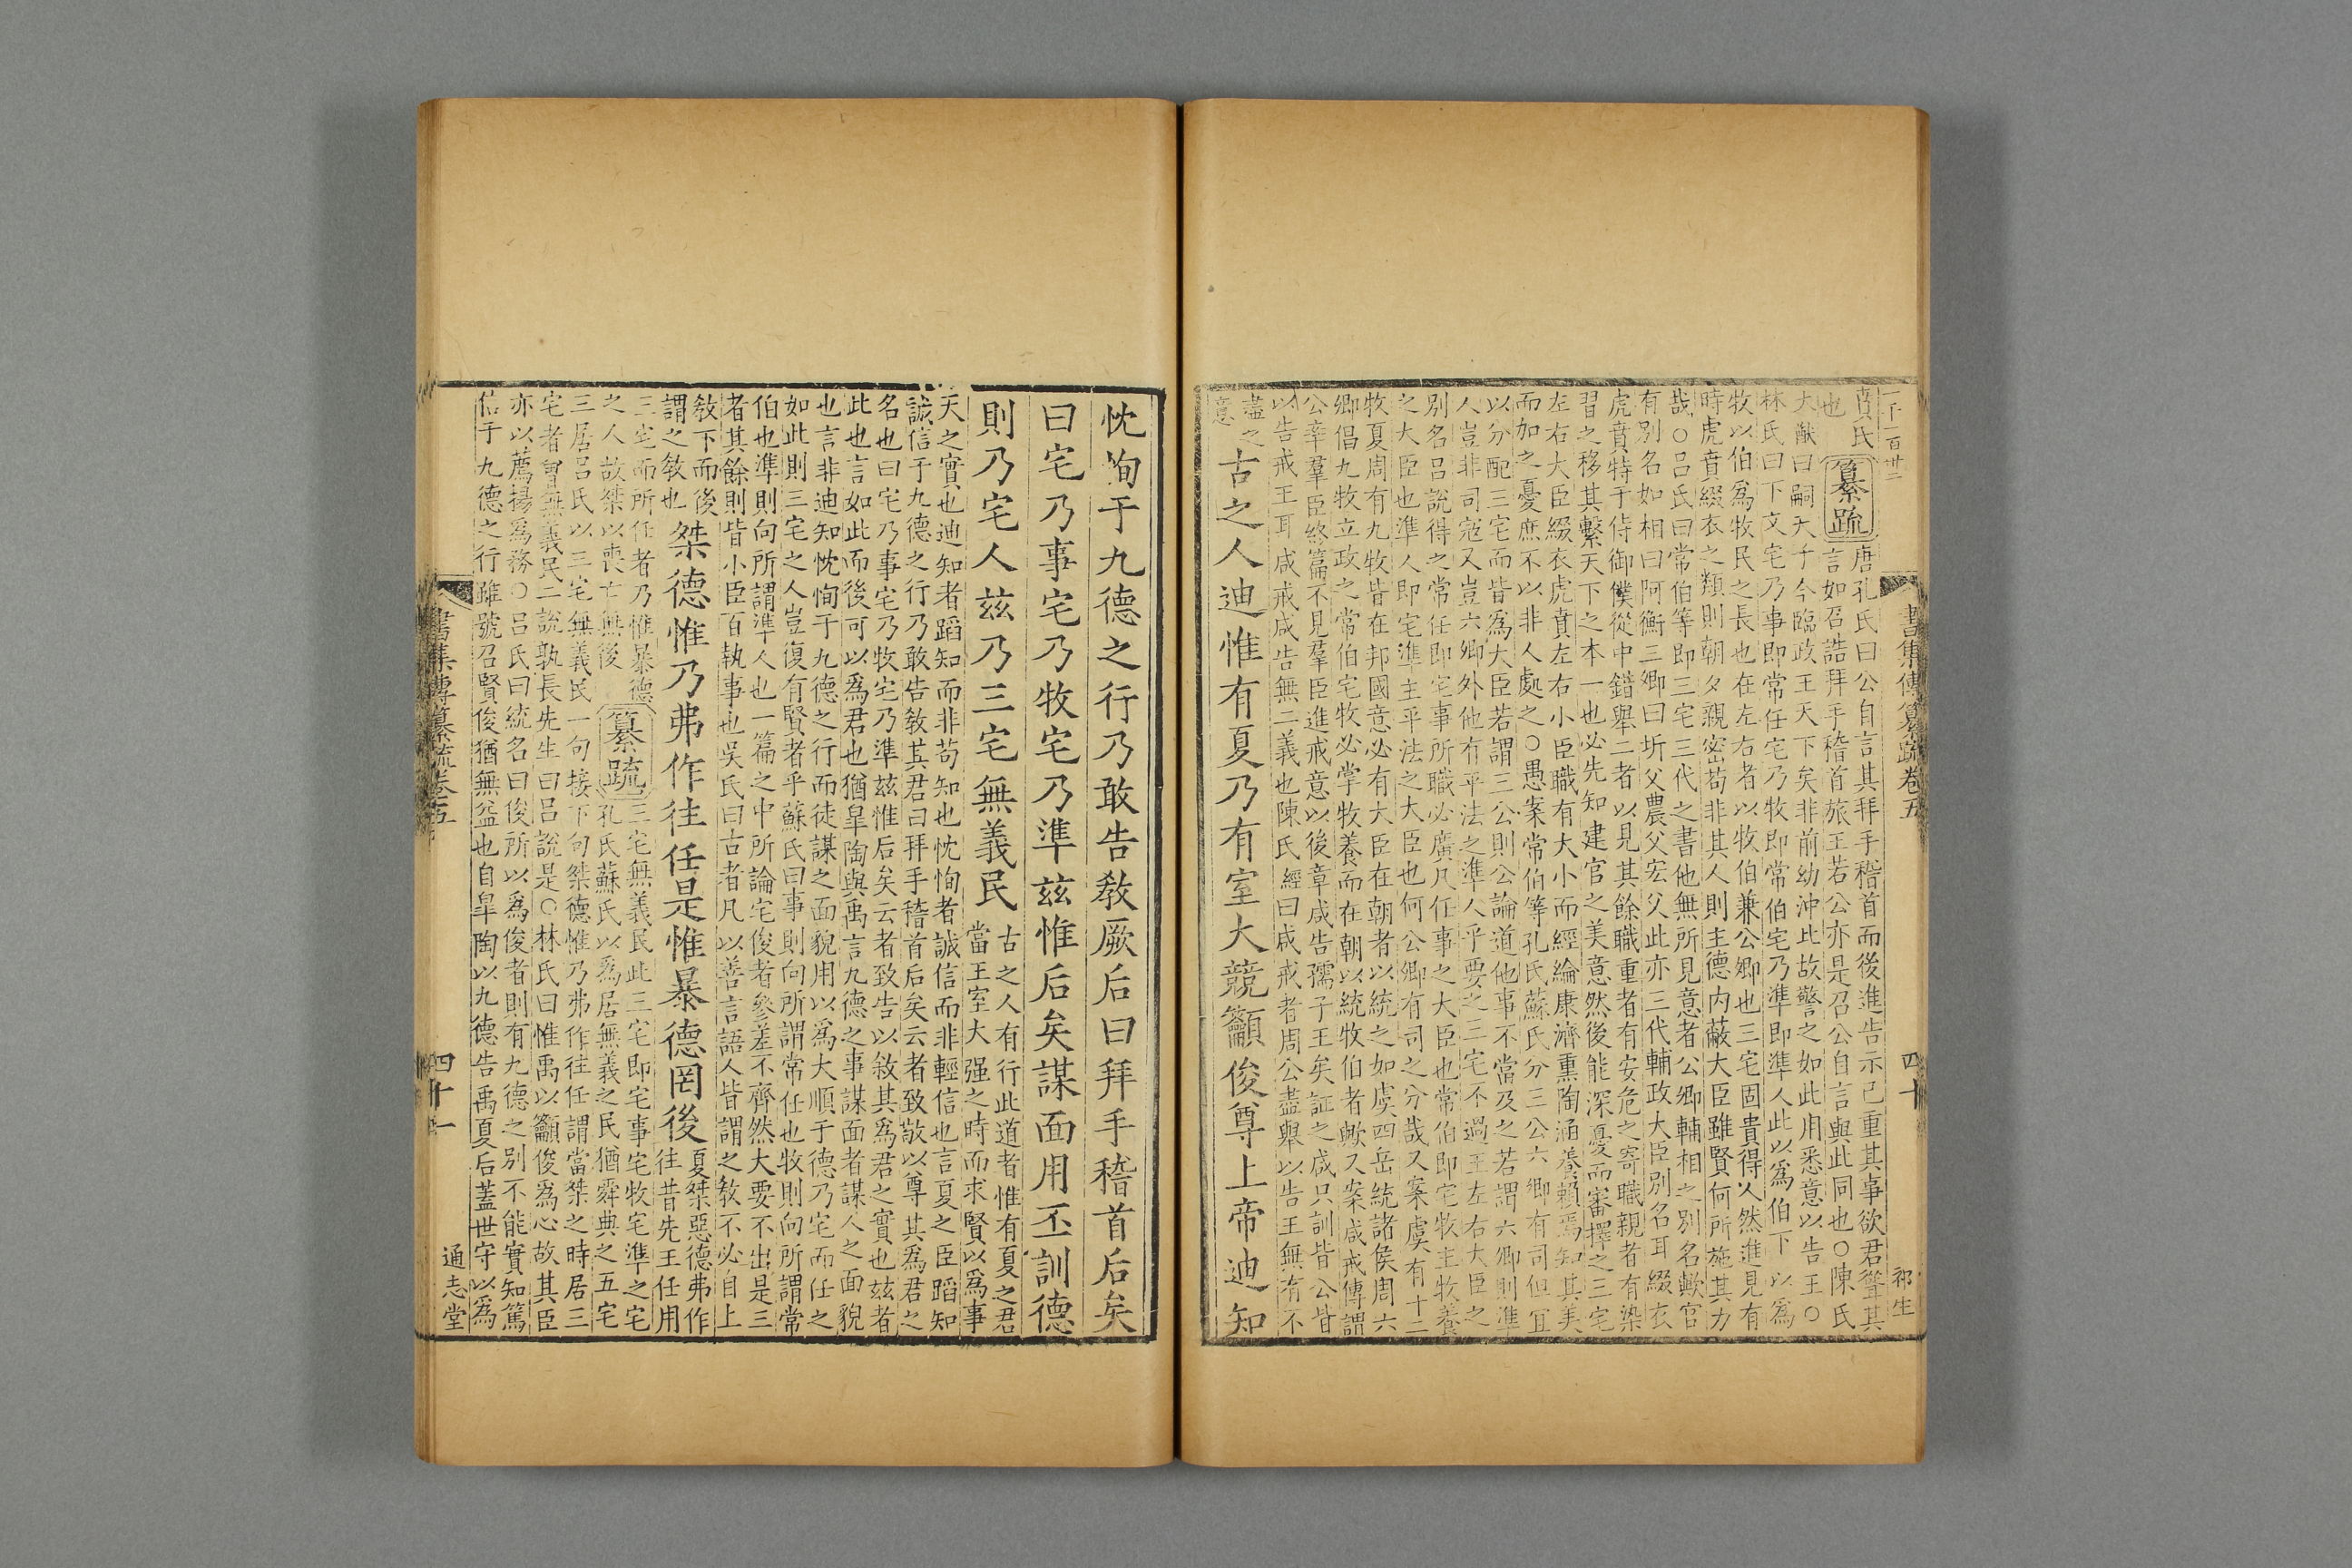 一千一百廿二
書集傳纂疏卷五
四十
祁生
賁氏 纂疏 唐孔氏曰公自言其拜手稽首而後進告示己重其事欲君聳其
也 言如召誥拜手稽首旅王若公亦是召公自言與此同也○陳氏
大猷曰嗣天子今臨政王天下矣非前幼沖此故警之如此用悉意以告王○
林氏曰下文宅乃事即常任宅乃牧即常伯宅乃準即準人此以爲伯下以爲
牧以伯爲牧民之長也在左右者以牧伯兼公卿也三宅固貴得人然進見有
時虎賁綴衣之類則朝夕親密苟非其人則主德内蔽大臣雖賢何所施其力
哉○呂氏曰常伯等即三宅三代之書他無所見意者公卿輔相之別名歟官
有別名如相曰阿衡三卿曰圻父農父宏父此亦三代輔政大臣別名耳綴衣
虎賁特于侍御僕從中錯舉二者以見其餘職重者有安危之寄職親者有染
習之移其繫天下之本一也必先知建官之美意然後能深憂而審擇之三宅
左右大臣綴衣虎賁左右小臣職有大小而經綸康濟熏陶涵養賴焉知其美
而加之憂庶不以非人處之○愚案常伯等孔氏蘇氏分三公六卿有司但宜
以分配三宅而皆爲大臣若謂三公則公論道他事不當及之若謂六卿則準
人豈非司寇又豈六卿外他有平法之準人乎要之三宅不過王左右大臣之
別名呂說得之常任即宅事所職必廣凡任事之大臣也常伯即宅牧主牧養
之大臣也準人即宅準主平法之大臣也何公卿有司之分哉又案虞有十二
牧夏周有九牧皆在邦國意必有大臣在朝者以統之如虞四岳統諸侯周六
卿倡九牧立政之常伯宅牧必掌牧養而在朝以統牧伯者歟又案咸戒傳謂
公率羣臣終篇不見羣臣進戒意以後章咸告孺子王矣証之咸只訓皆公皆
以告戒王耳咸戒咸告無二義也陳氏經曰咸戒者周公盡舉以告王無有不
盡之
意 古之人迪惟有夏乃有室大競籲俊尊上帝迪知
忱恂于九德之行乃敢告教厥后曰拜手稽首后矣
曰宅乃事宅乃牧宅乃準茲惟后矣謀面用丕訓德
則乃宅人茲乃三宅無義民 古之人有行此道者惟有夏之君
當王室大强之時而求賢以爲事
天之實也迪知者蹈知而非苟知也忱恂者誠信而非輕信也言夏之臣蹈知
誠信于九德之行乃敢告敎其君曰拜手稽首后矣云者致敬以尊其爲君之
名也曰宅乃事宅乃牧宅乃準茲惟后矣云者致告以敘其爲君之實也茲者
此也言如此而後可以爲君也猶皐陶與禹言九德之事謀面者謀人之面貌
也言非迪知忱恂于九德之行而徒謀之面貌用以爲大順于德乃宅而任之
如此則三宅之人豈復有賢者乎蘇氏曰事則向所謂常任也牧則向所謂常
伯也準則向所謂準人也一篇之中所論宅俊者參差不齊然大要不出是三
者其餘則皆小臣百執事也吳氏曰古者凡以善言語人皆謂之敎不必自上
敎下而後
謂之敎也 桀德惟乃弗作往任是惟暴德罔後 夏桀惡德弗作
往昔先王任用
三宅而所任者乃惟暴德
之人故桀以喪亡無後 纂疏 三宅無義民此三宅即宅事宅牧宅準之宅
孔氏蘇氏以爲居無義之民猶舜典之五宅
三居呂氏以三宅無義民一句接下句桀德惟乃弗作往任謂當桀之時居三
宅者曾無義民二說孰長先生曰呂說是○林氏曰惟禹以籲俊爲心故其臣
亦以薦揚爲務○呂氏曰統名曰俊所以爲俊者則有九德之別不能實知篤
信于九德之行雖號召賢俊猶無益也自皐陶以九德告禹夏后蓋世守以爲
書集傳纂疏卷五
四十一
通志堂